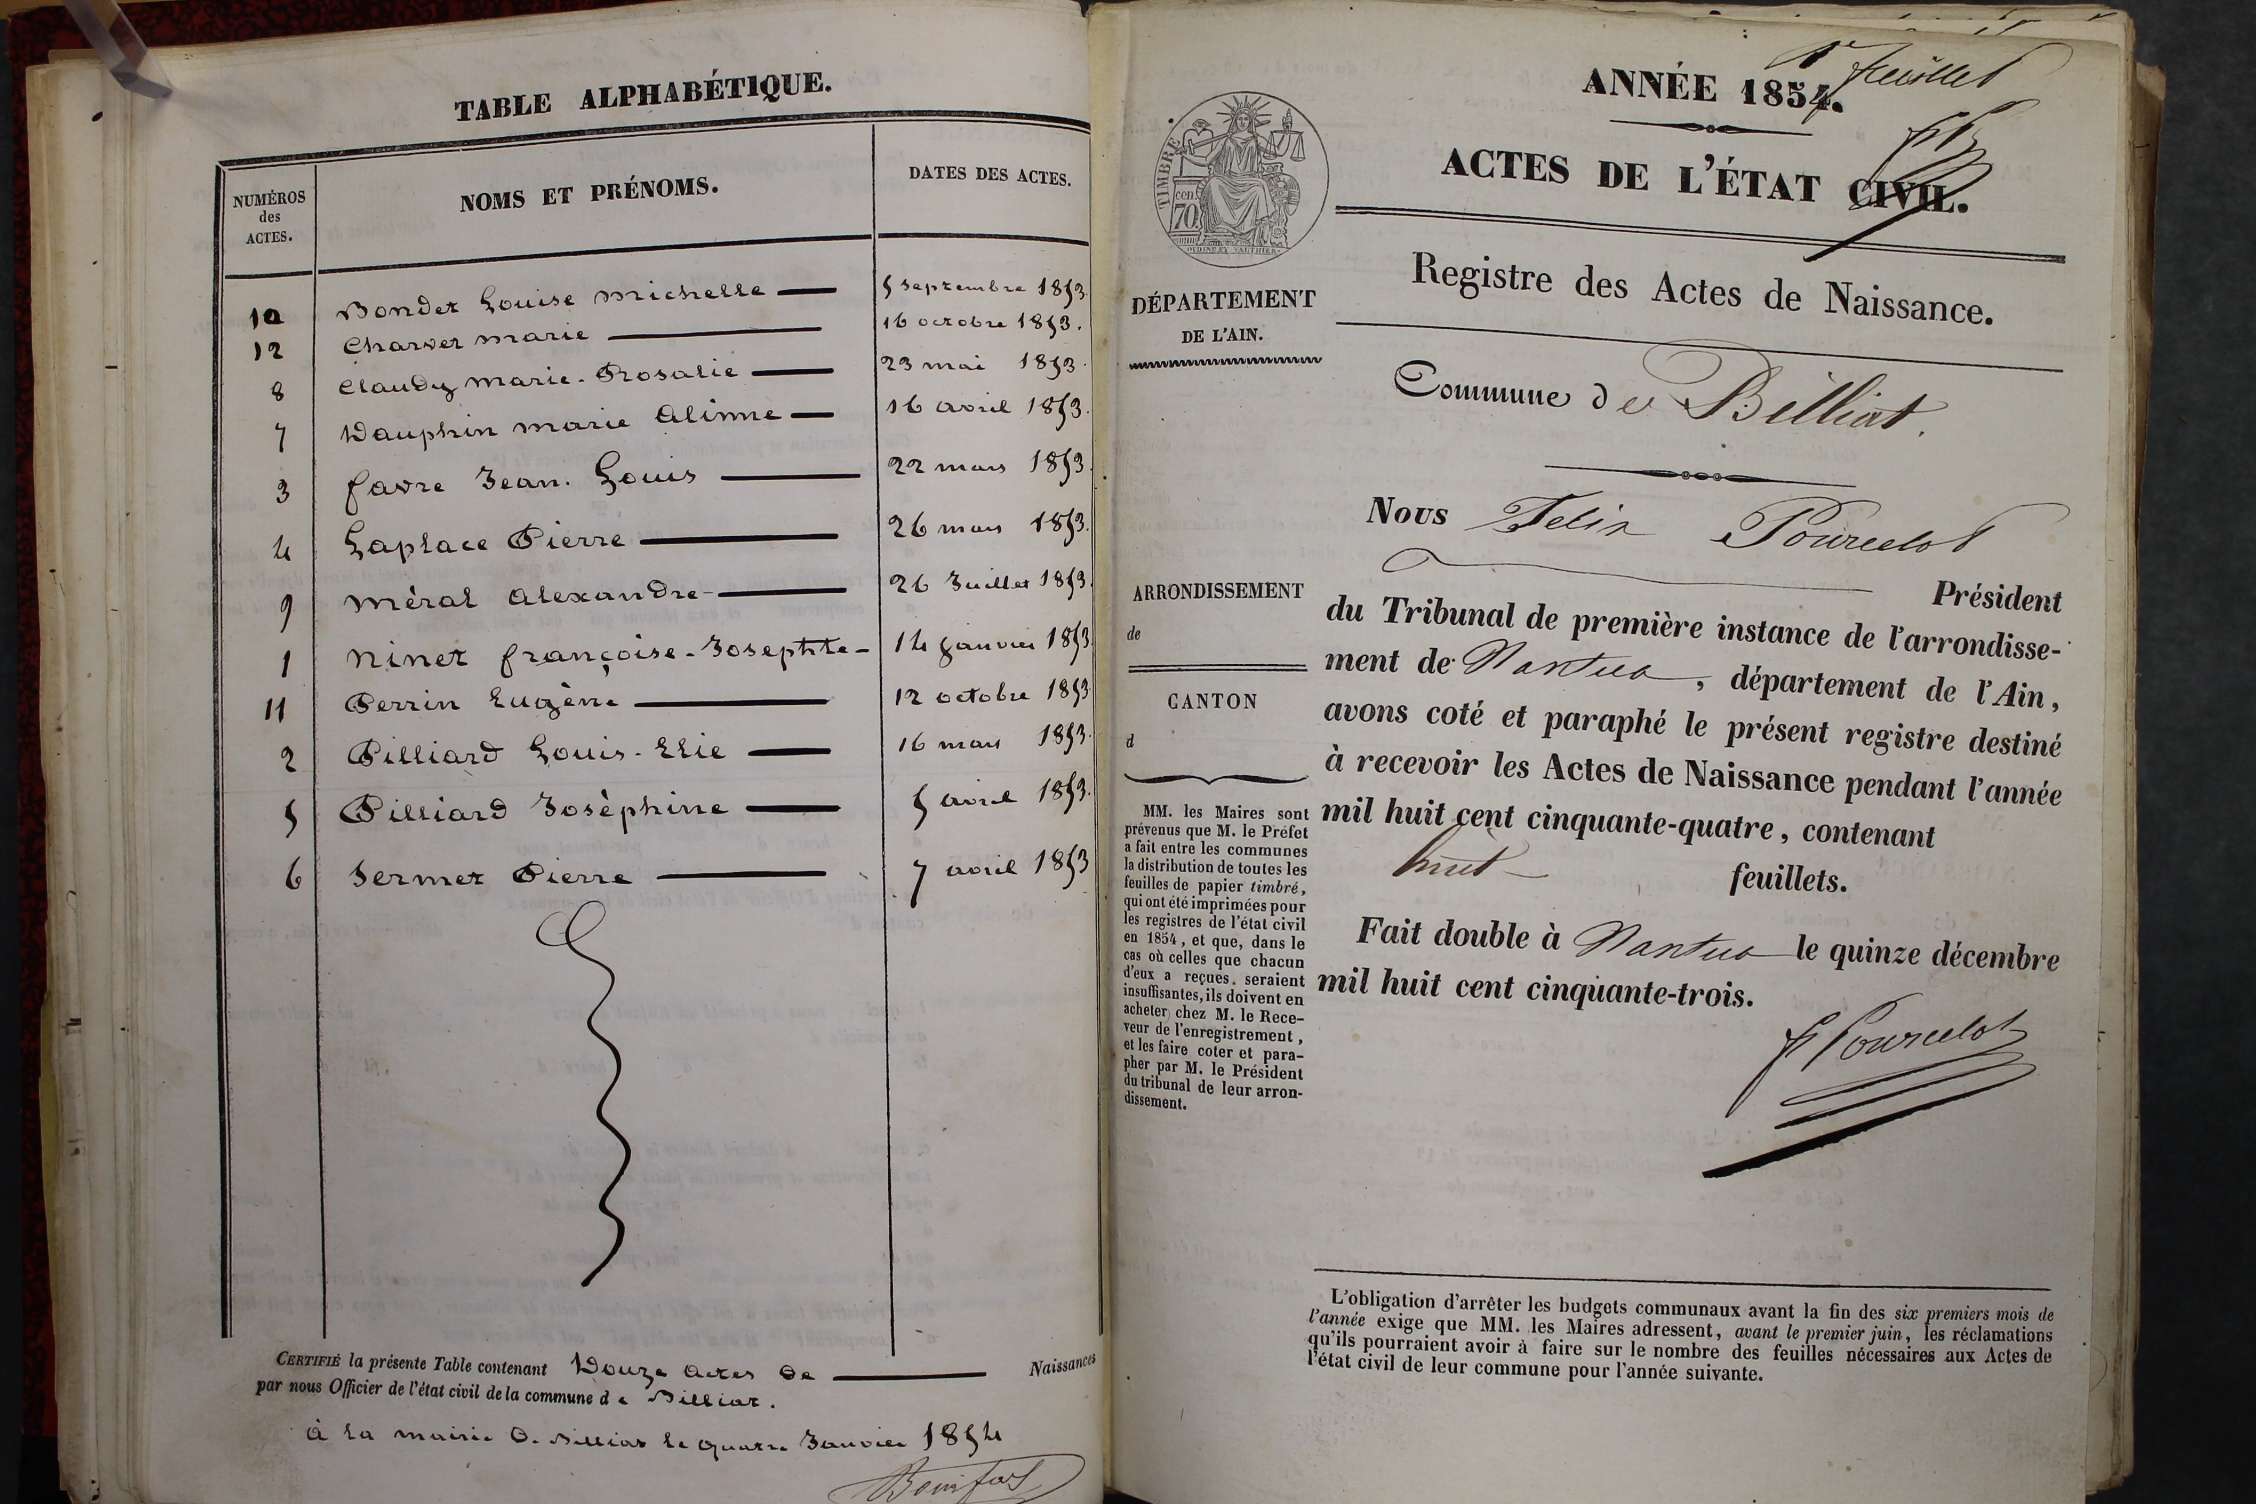 TABLE ALPHABÉTIQUE.
NUMÉROS des ACTES. NOMS ET PRÉNOMS. DATES DES ACTES.
10 Bondet Louise Michelle 5 septembre 1853.
12 Charvet marie 16 octobre 1853.
8 Claudy marie-Rosalie 23 mai 1853.
7 Dauphin marie Alinne 16 avril 1853.
3 favre Jean-Louis 22 mars 1853.
4 Laplace Pierre 26 mars 1853.
9 Méral Alexandre 26 Juillet 1853.
1 Ninet françoise-Josephte 14 Janvier 1853
11 Perrin Eugène 12 octobre 1853.
2 Pilliard Louis-Elie 16 mars 1853.
5 Pilliard Josèphine 5 avril 1853.
6 Sermet Pierre 7 avril 1853
CERTIFIÉ la présente Table contenant Douze actes de Naissances
par nous Officier de l'état civil de la commune de Billiat.
à la mairie de Billiat le quatre Janvier 1854
1er feuillet
ANNÉE 1854.
ACTES DE L'ÉTAT CIVIL.
TIMBRE
70 cen.
Registre des Actes de Naissance.
DÉPARTEMENT
DE L'AIN.
Commune de Billiat.
Nous Felix Pourcelot
Président
du Tribunal de première instance de l'arrondisse-
ment de Nantua, département de l'Ain,
avons coté et paraphé le présent registre destiné
à recevoir les Actes de Naissance pendant l'année
mil huit cent cinquante-quatre, contenant
huit feuillets.
Fait double à Nantua le quinze décembre
mil huit cent cinquante-trois.
F Pourcelot
ARRONDISSEMENT
de
CANTON
d
MM. les Maires sont
prévenus que M. le Préfet
a fait entre les communes
la distribution de toutes les
feuilles de papier timbré,
qui ont été imprimées pour
les registres de l'état civil
en 1854, et que, dans le
cas où celles que chacun
d'eux a reçues, seraient
insuffisantes, ils doivent en
acheter chez M. le Rece-
veur de l'enregistrement,
et les faire coter et para-
pher par M. le Président
du tribunal de leur arron-
dissement.
L'obligation d'arrêter les budgets communaux avant la fin des six premiers mois de
l'année exige que MM. les Maires adressent, avant le premier juin, les réclamations
qu'ils pourraient avoir à faire sur le nombre des feuilles nécessaires aux Actes de
l'état civil de leur commune pour l'année suivante.